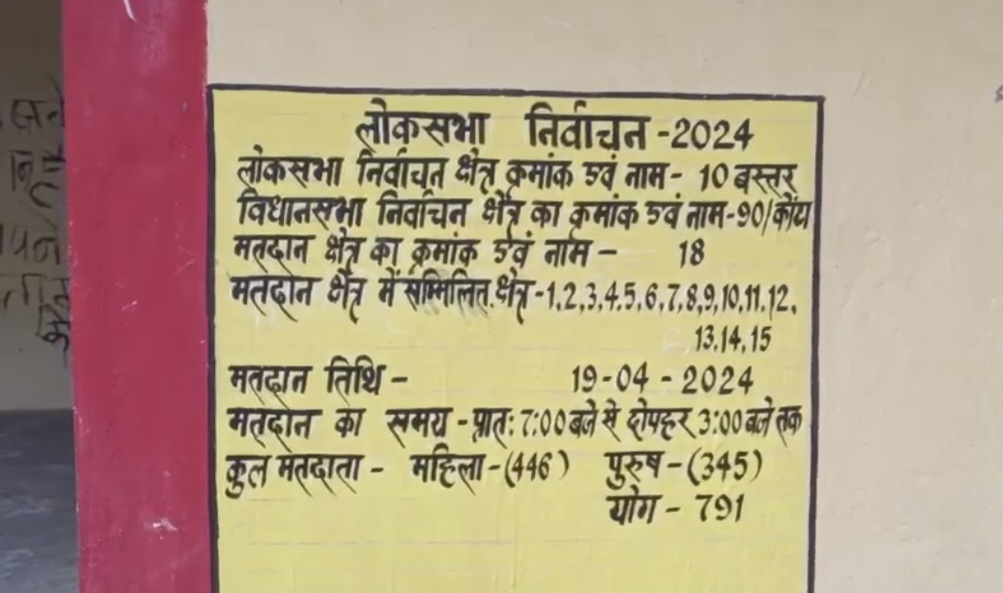 लोकसभा निर्वाचन -2024
लोकसभा निर्वाचन क्षेत्र क्रमांक एवं नाम - 10 बस्तर
विधानसभा निर्वाचन क्षेत्र का क्रमांक एवं नाम-90/कोंटा
मतदान क्षेत्र का क्रमांक एवं नाम - 18
मतदान क्षेत्र में सम्मिलित क्षेत्र -1,2,3,4,5,6,7,8,9,10,11,12,
13,14,15
मतदान तिथि - 19-04-2024
मतदान का समय -प्रात: 7:00 बजे से दोपहर 3:00 बजे तक
कुल मतदाता - महिला-(446) पुरुष-(345)
योग - 791